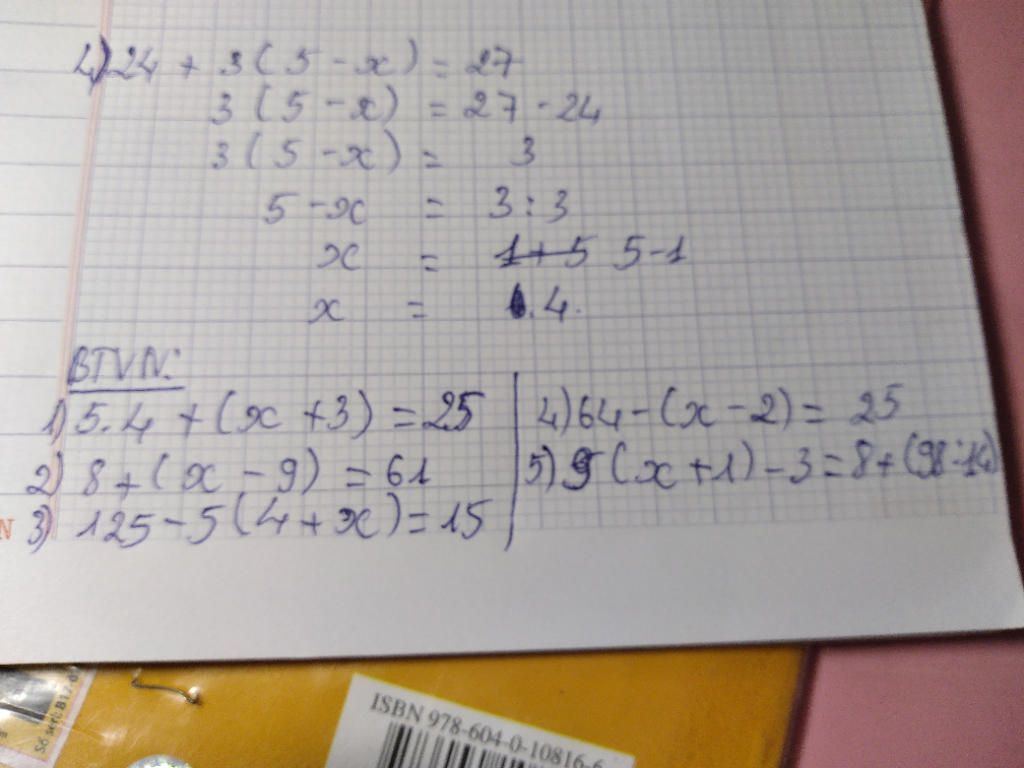 4) 24 + 3(5 - x) = 27
3(5 - x) = 27 - 24
3(5 - x) = 3
5 - x = 3 : 3
x = 1 + 5 5 - 1
x = 4.
BTVN:
1) 5.4 + (x + 3) = 25
2) 8 + (x - 9) = 61
3) 125 - 5(4 + x) = 15
4) 64 - (x - 2) = 25
5) 9(x + 1) - 3 = 8 + (98 : 14)
N
Số seri: B12-0
ISBN 978-604-0-10816-6